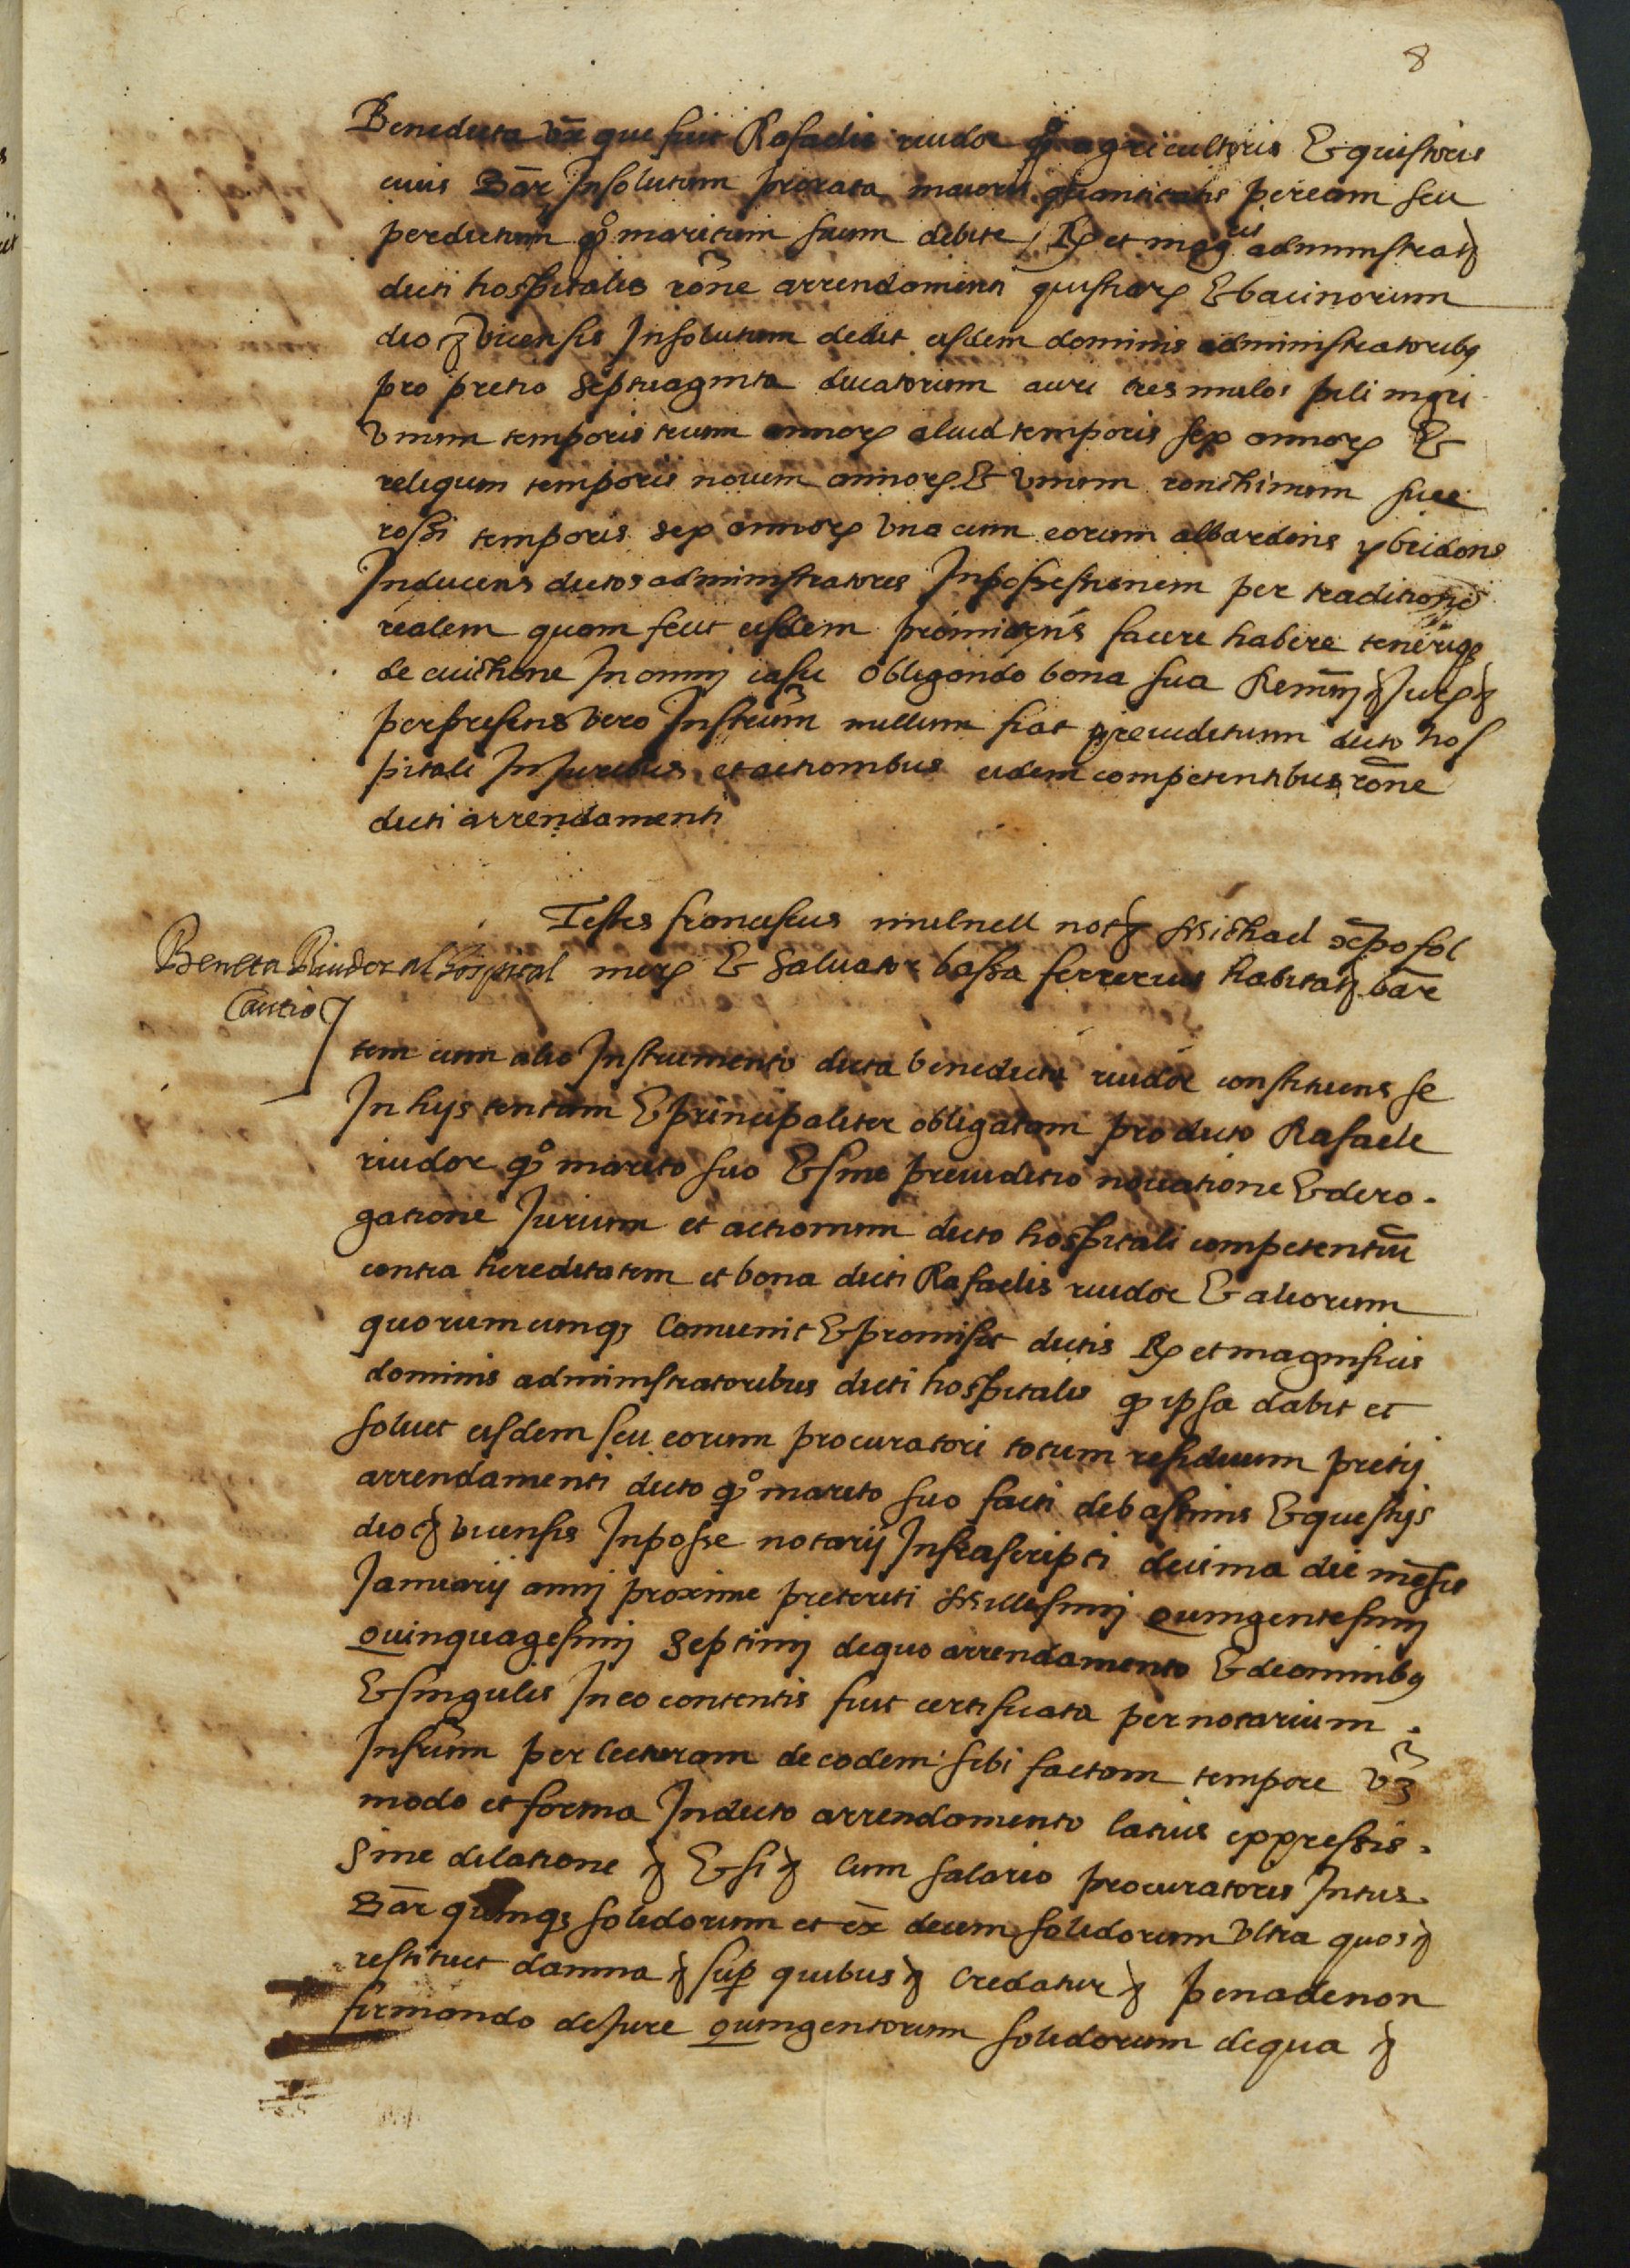 8
Benedicta vx que fuit Rafaelis riudor qo agricultoris & questoris
civis Bar Insolutum prorata maioris quantitatis per eam seu
per dictum qo maritum suum debite Rdis et magcis administrat
dicti hospitalis rone arrendamenti questiarum & bacinorum
dioc vicensis Insolutum dedit eisdem dominis administratoribus
pro pretio septuaginta ducatorum auri tres mulos pili nigri
vnum temporis trium annorum aliud temporis sex annorum &
reliqum temporis novem annorum & vnum ronchinum sive
rossi temporis sex annorum vna cum eorum albardinis y bridons
Inducens dictos administratores Inpossessionem per traditione
realem quam fecit eisdem promictens facere habere tenerique
de euictione In omnj casu obligando bona sua Renunj & Jure &
per presens vero Instrum nullum fiat preiuditium dicto hos
pitali In Juribus et actionibus eidem competentibus rone
dicti arrendamenti
Testes franciscus mulnell not Michael
merc & Saluator bassa ferrerius habitat bare
Beneta Riudor al hospital
Cautio
tem cum alio Instrumento dicta benedicta riudor constituens se
In hijs tentam & principaliter obligatam pro dicto Rafaele
riudor qo marito suo & sine preiuditio nouatione & dero-
gatione Jurium et actionum dicto hospitali competentium
contra hereditatem et bona dicti Rafaelis riudor & aliorum
quorumcunq Conuenit & promisit dictis Rdis et magnificis
dominis administratoribus dicti hospitalis q ipsa dabit et
soluet eisdem seu eorum procuratori totum residuum pretij
arrendamenti dicto qo marito suo facti de bassinis & questijs
dioc vicensis Inposse notarij Infrascripti decima die mensis
Januarij annj proxime preteriti Millesimj quingentesimj
quinquagesimj septimj de quo arrendamento & de omnibus
& singulis In eo contentis fuit certificata per notarium
Infrum per lecturam de eodem sibi factam tempore vz
modo et forma In dicto arrendamento latius expressis.
Sine dilatione & & si & Cum salario procuratoris Intus
Bar quinq solidorum et ex decem solidorum vltra quos &
restituet damna & sup quibus & Credatur & pena de non
firmando de Jure quingentorum solidorum de qua &